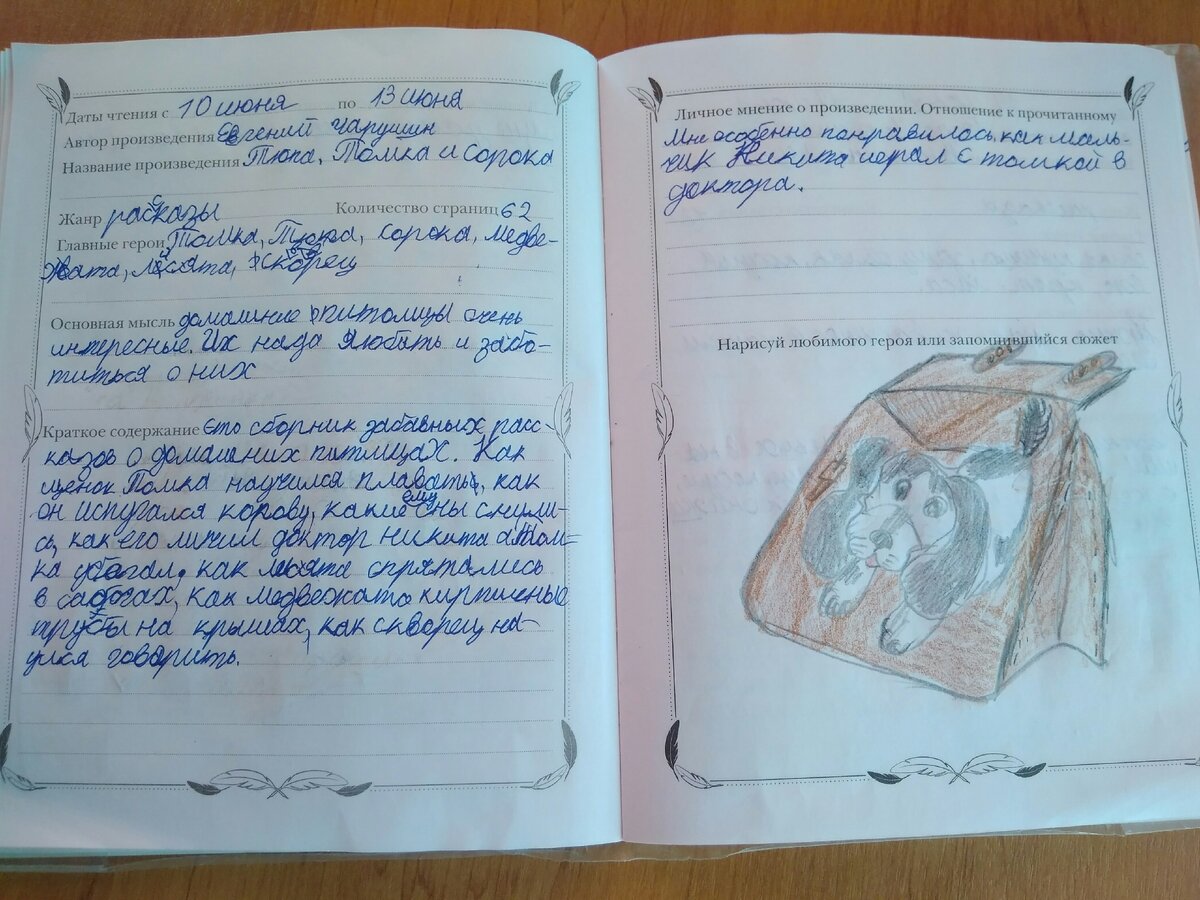 Даты чтения с 10 июня по 13 июня
Автор произведения Евгений Чарушин
Название произведения Тюпа, Томка и сорока
Жанр рассказы Количество страниц 62
Главные герои Томка, Тюпа, сорока, медве-
жата, лисята, скворец
Основная мысль домашние питомцы очень
интересные. Их нада любить и забо-
титься о них
Краткое содержание Это сборник забавных расс-
казов о домашних питмцах. Как
щенок Томка научился плавать, как
он испугался корову, какие ему сны снили-
сь, как его личил доктор никита а Том-
ка убегал, как лисята спрятались
в сапогах, как медвежата
трубы на крышах, как скворец на-
учлся говорить.
Личное мнение о произведении. Отношение к прочитанному
Мне особенно понравилось, как маль-
чик Никита играл с томкой в
доктора.
Нарисуй любимого героя или запомнившийся сюжет